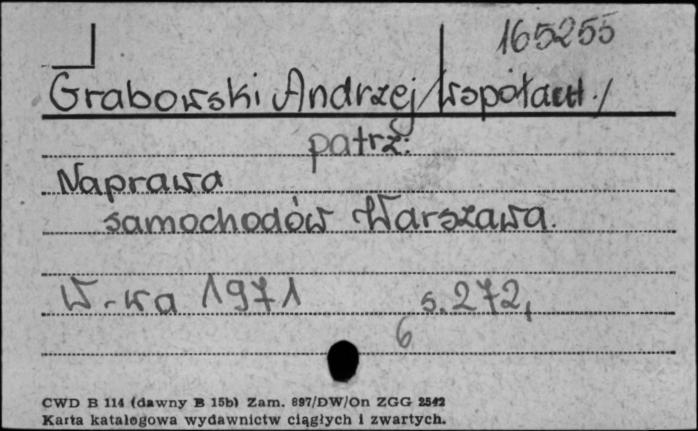 165255
Grabowski Andrzej /współaut./
patrz:
Naprawa
samochodów Warszawa.
W-wa 1971 s. 272,
6
CWD B 114 (dawny B 15b) Zam. 897/DW/On ZGG 2542
Karta katalogowa wydawnictw ciągłych i zwartych.